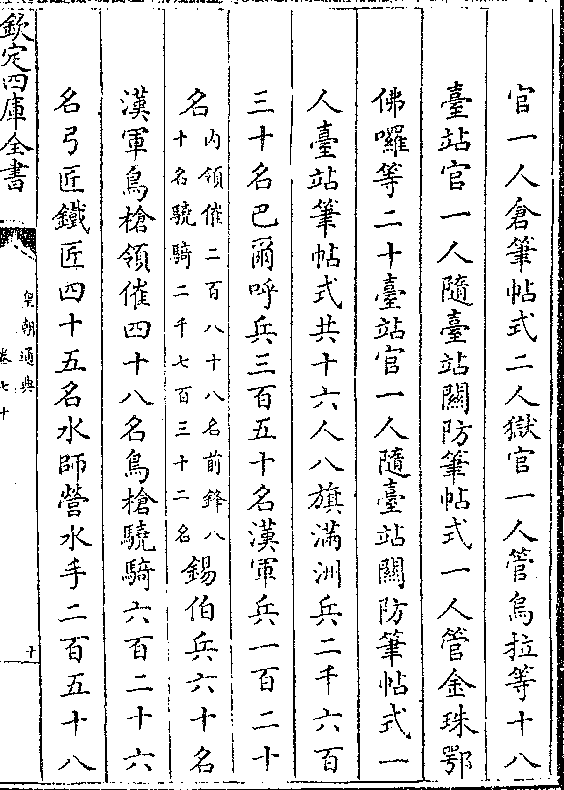 官一人倉筆帖式二人獄官一人管烏拉等十八
臺站官一人隨臺站關防筆帖式一人管金珠鄂
佛囉等二十臺站官一人隨臺站關防筆帖式一
人臺站筆帖式共十六人八旗滿洲兵二千六百
三十名巴爾呼兵三百五十名漢軍兵一百二十
名內領催二百八十八名前鋒八十名驍騎二千七百三十二名錫伯兵六十名
漢軍鳥槍領催四十八名鳥槍驍騎六百二十六
名弓匠鐵匠四十五名水師營水手二百五十八
欽定四庫全書
皇朝通典
卷七十
十